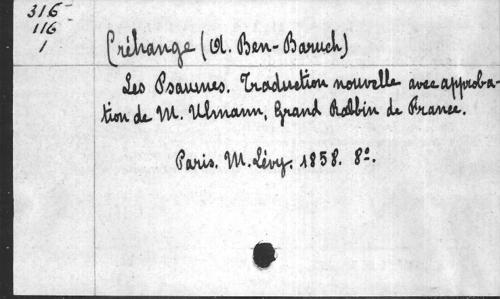 316
116
1
Créhange (A. Ben-Baruch)
Les Psaumes. Traduction nouvelle avec approba-
tion de M. Ulmann, Grand Rabbin de France.
Paris. M. Lévy. 1858. 8°.